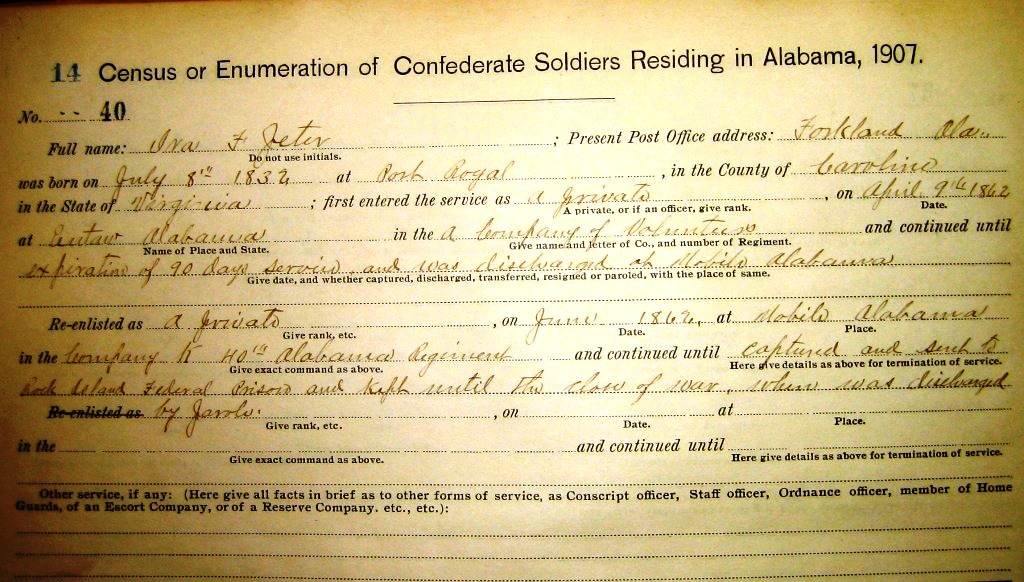 14 Census or Enumeration of Confederate Soldiers Residing in Alabama, 1907.
No. 40
Full name: Ira F Jeter ; Present Post Office address: Forkland Ala.
Do not use initials.
was born on July 8th 1832 at Port Royal , in the County of Caroline
in the State of Virginia ; first entered the service as A private , on April 9th 1862
A private, or if an officer, give rank. Date.
at Eutaw Alabama in the A Company of Volunteers and continued until
Name of Place and State. Give name and letter of Co., and number of Regiment.
expiration of 90 days service, and was discharged at Mobile Alabama
Give date, and whether captured, discharged, transferred, resigned or paroled, with the place of same.
Re-enlisted as A private , on June 1862, at Mobile Alabama
Give rank, etc. Date. Place.
in the Company K 40th Alabama Regiment and continued until captured and sent to
Give exact command as above. Here give details as above for termination of service.
Rock Island Federal Prison and kept until the close of war, when was discharged
Re-enlisted as by parole. , on at
Give rank, etc. Date. Place.
in the and continued until
Give exact command as above. Here give details as above for termination of service.
Other service, if any: (Here give all facts in brief as to other forms of service, as Conscript officer, Staff officer, Ordnance officer, member of Home
Guards, of an Escort Company, or of a Reserve Company. etc., etc.):